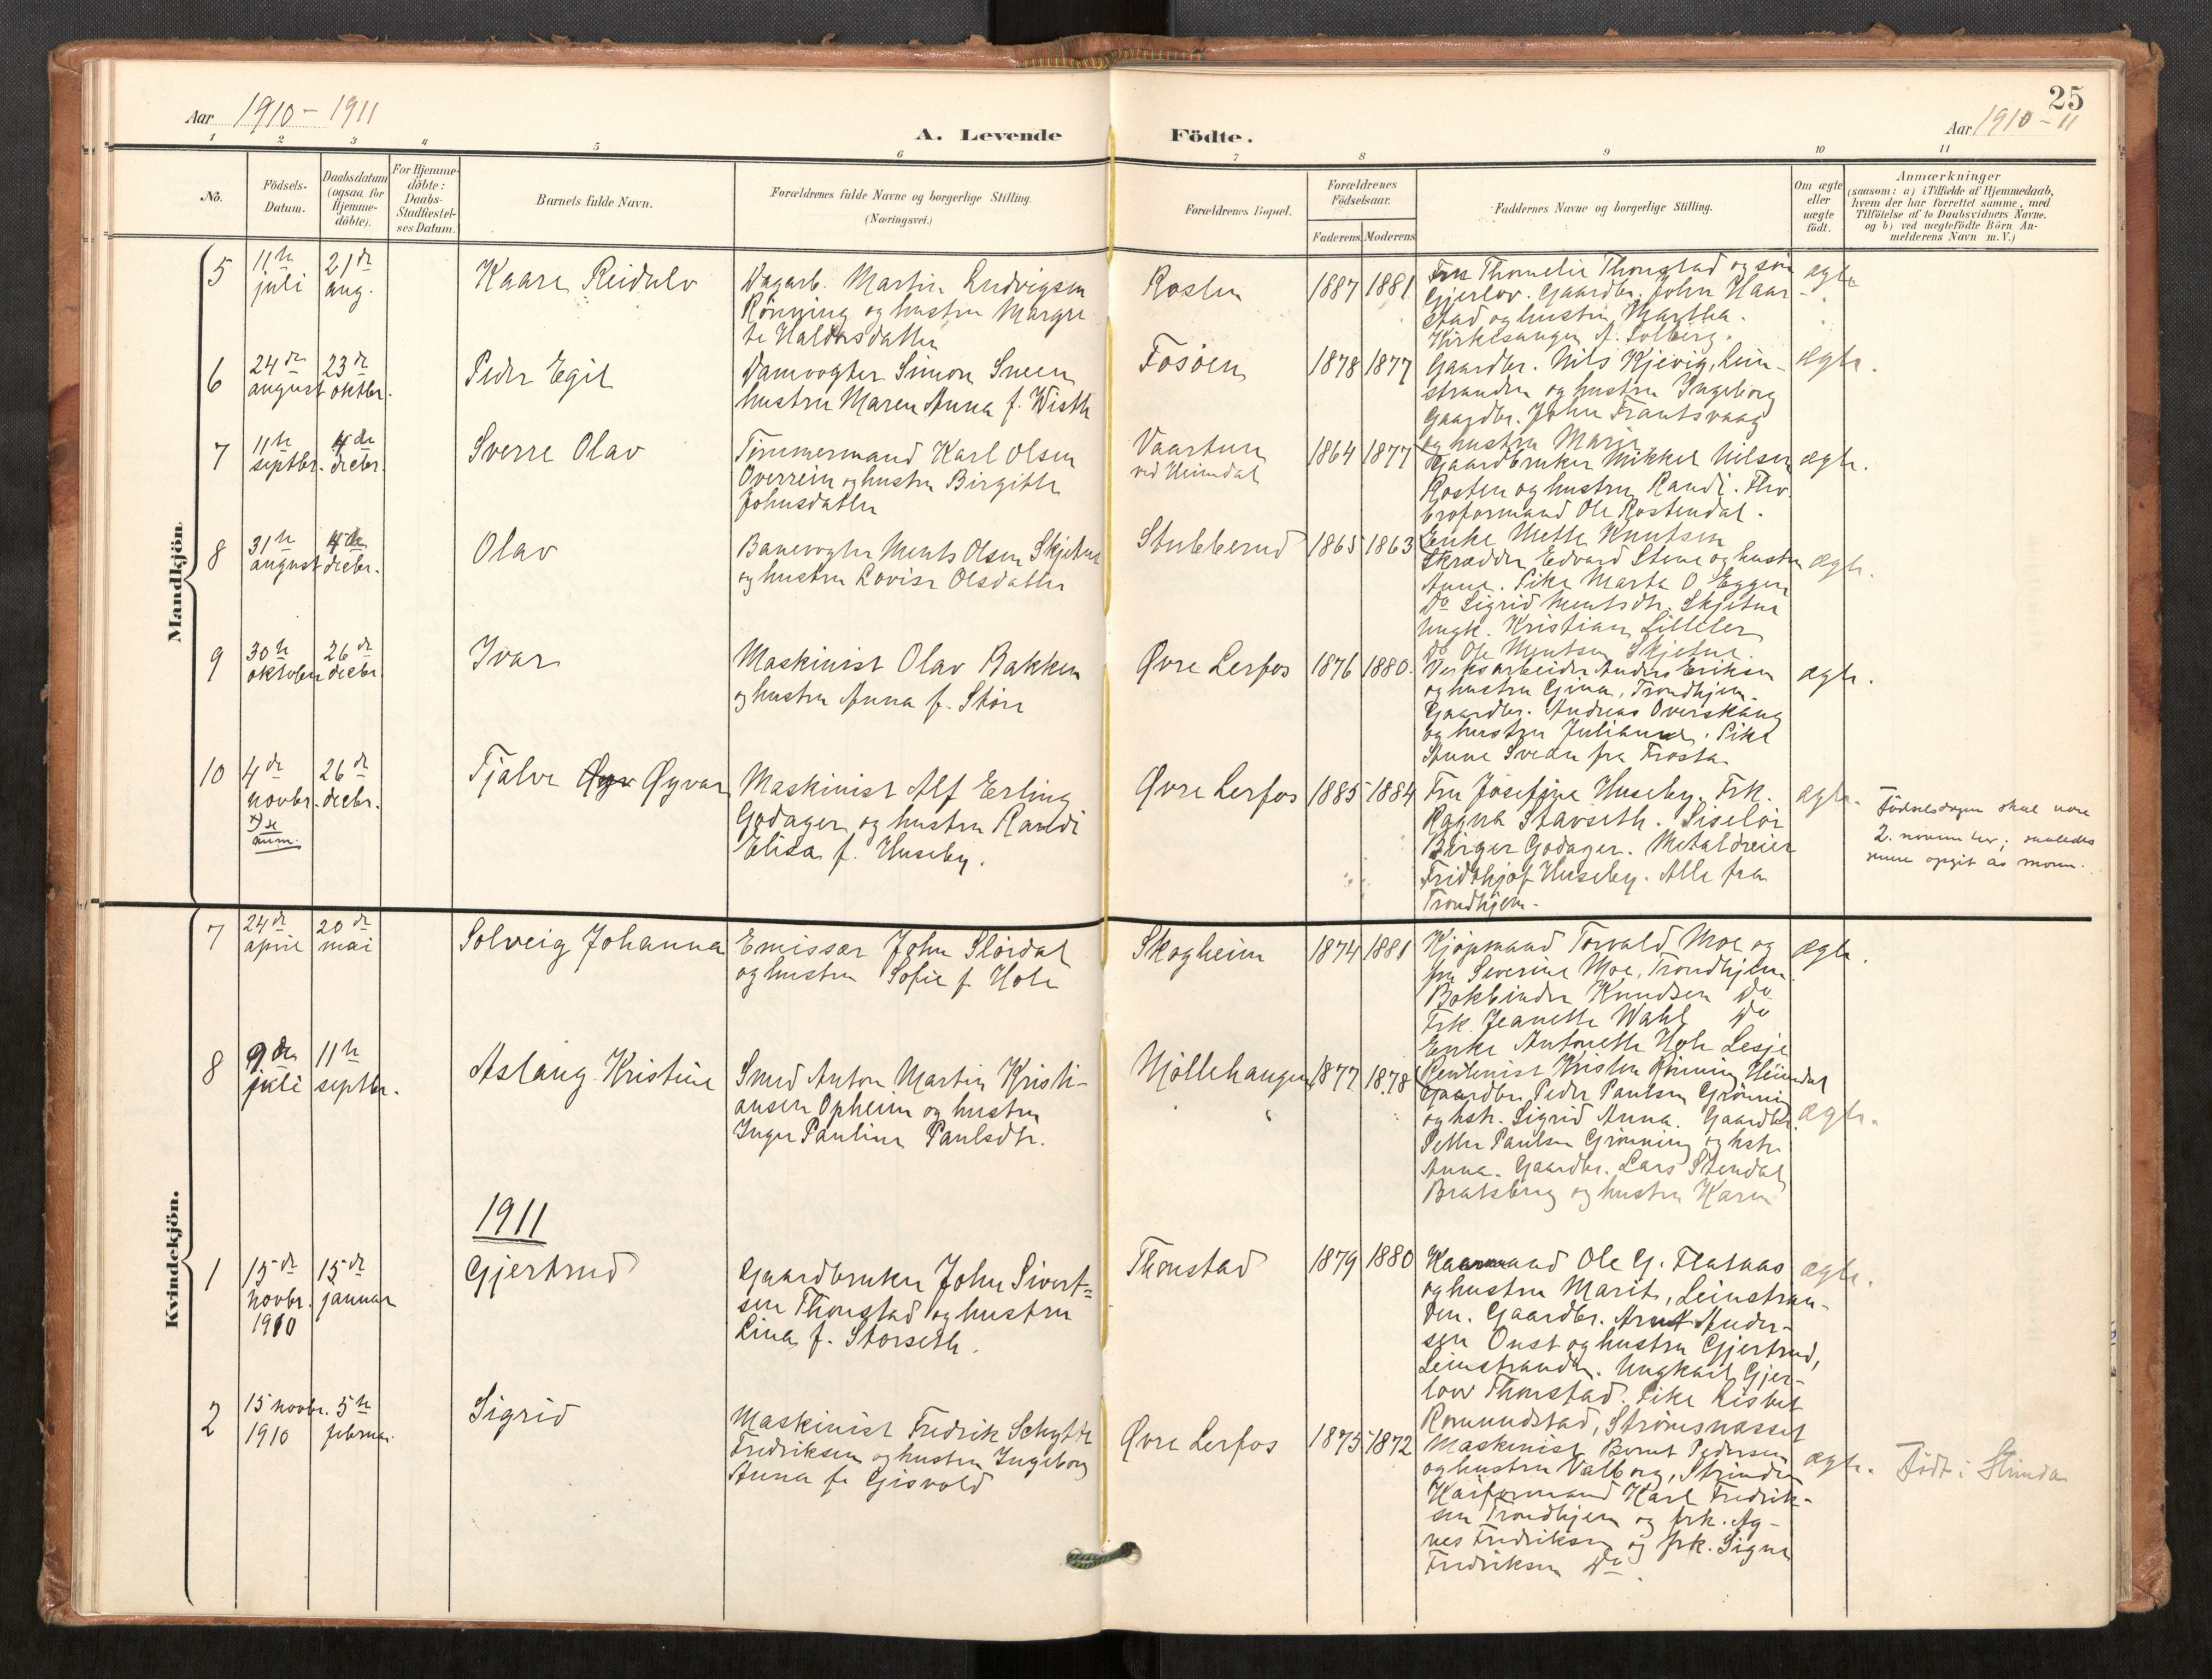 Aar 1910 - 1911
A. Levende Födte.
25
Aar 1910 - 11
1 2 3 4 5 6 7 8 9 10 11
No.
Födsels-
Datum.
Daabsdatum
(ogsaa for
Hjemme-
döbte).
For Hjemme-
döbte:
Daabs-
Stadfæstel-
ses Datum.
Barnets fulde Navn.
Forældrenes fulde Navne og borgerlige Stilling.
(Næringsvei.)
Forældrenes Bopæl.
Forældrenes
Födselsaar.
Faderens Moderens
Faddernes Navne og borgerlige Stilling.
Om ægte
eller
uægte
födt.
Anmærkninger
(saasom: a) i Tilfælde af Hjemmedaab,
hvem der har forrettet samme, med
Tilföielse af to Daabsvidners Navne,
og b) ved uægtefödte Börn An-
melderens Navn m.V.)
Mandkjön.
5
11te
juli
21de
aug.
Kaare Reidulv
Dagarb. Martin Ludvigsen
Rönning og hustru Margre
te Haldorsdatter
Rosten
1887 1881
Fru Thomelie Thonstad og søn
Gjerlov. Gaardbr. John Haar-
stad og hustru Martha.
Kirkesanger A. Solberg.
ægte
6
24de
august
23de
oktbr.
Peder Egil
Damvogter Simon Sneen
hustru Maren Anna f. Wisth
Fosöen
1878 1877
Gaardbr. Nils Kjevig, Lein-
stranden og hustru Ingeborg
Gaardbr. John Frantsvaag
og hustru Marie
ægte.
7
11te
septbr.
4de
decbr.
Sverre Olav
Tömmermand Karl Olsen
Overrein og hustru Birgitte
Johnsdatter
Vaartun
ved Heimdal
1864 1877
Gaardbruker Mikkel Nilsen
Rosten og hustru Randi.
broformand Ole Rostendal.
Enke Mette Knutsen
ægte.
8
31te
august
4de
decbr.
Olav
Banevogter Ments Olsen Skjetne
og hustru Lovise Olsdatter
Stubberud
1865 1863
Skrædder Edvard Stene og hustru
Anne. Pike Marta O Eggen
Do Sigrid Mentsdtr. Skjetne
Ungk. Kristian Lilleler
Do Ole Mentsen Skjetne.
ægte.
9
30te
oktober
26de
decbr
Ivar
Maskinist Olav Bakken
og hustru Anna f. Støre
Øvre Lerfos
1876 1880.
Verksarbeider Anders Eriksen
og hustru Gina, Trondhjem.
Gaardbr. Andreas Overskaug
og hustru Julianne. Pike
Anne Svedn fra Frosta.
ægte.
10
4de
novbr.
x) se
anm.
26de
decbr.
Tjalve Øyvar
Maskinist Alf Erling
Godager og hustru Randi
Elisa f. Huseby.
Øvre Lerfos
1885 1884
Fru Josefine Huseby. Frk.
Ragna Stavseth. Siselör
Birger Godager. Metaldreier
Fridthjof Huseby. Alle fra
Trondhjem.
ægte.
Födselsdagen skal være
2. november; saaledes
senere opgit av moren.
Kvindekjön.
7
24de
april
20de
mai
Solveig Johanna
Emissær John Stördal
og hustru Sofie f. Hole
Skogheim
1874 1881
Kjöpmand Torvald Moe og
fru Severine Moe, Trondhjem.
Bokbinder Knudsen Do
Frk. Jeanette Wahl Do
Enke Antonette Hole Lesje
ægte.
8
9de
juli
11te
septbr.
Aslaug Kristine
Smed Anton Martin Kristi-
ansen Opheim og hustru
Inger Pauline Paulsdtr.
Möllehaugen
1877 1878
Rentenist Kristen Rönning Heimdal
Gaardbr. Peder Paulsen Grönning
og hstr. Sigrid Anna. Gaardbr.
Petter Paulsen Grönning og hstr.
Anna. Gaardbr. Lars Stendal
Bratsberg og hustru Karen
ægte.
1911
1
15de
novbr.
1910
15de
januar
Gjertrud
Gaardbruker John Sivert-
sen Thonstad og hustru
Lina f. Storseth.
Thonstad
1879 1880
Kaarmand Ole G. Flataas
og hustru Marit, Leinstran-
den. Gaardbr. Arnt Ander-
sen Onst og hustru Gjertrud,
Leinstranden. Ungkarl Gjer-
low Thonstad. Pike Lisbet
Romundstad, Strömsnasset
ægte.
2
15 novbr.
1910
5te
februar
Sigrid
Maskinist Fredrik Schytte
Fredriksen og hustru Ingeborg
Anna f. Gisvold
Øvre Lerfos
1875 1872
Maskinist Bernt Pedersen
og hustru Valborg, Strinden
Kaiformand Karl Fredrik-
sen Trondhjem og frk. Ag-
nes Fredriksen og frk. Signe
Fredriksen Do.
ægte.
Födt i Strinda